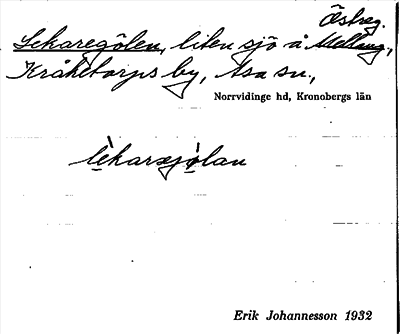 Östreg.
Lekaregölen, liten sjö å Mellreg,
Kråketorps by, Asa sn.,
Norrvidinge hd, Kronobergs län
lèkarəjölan
Erik Johannesson 1932